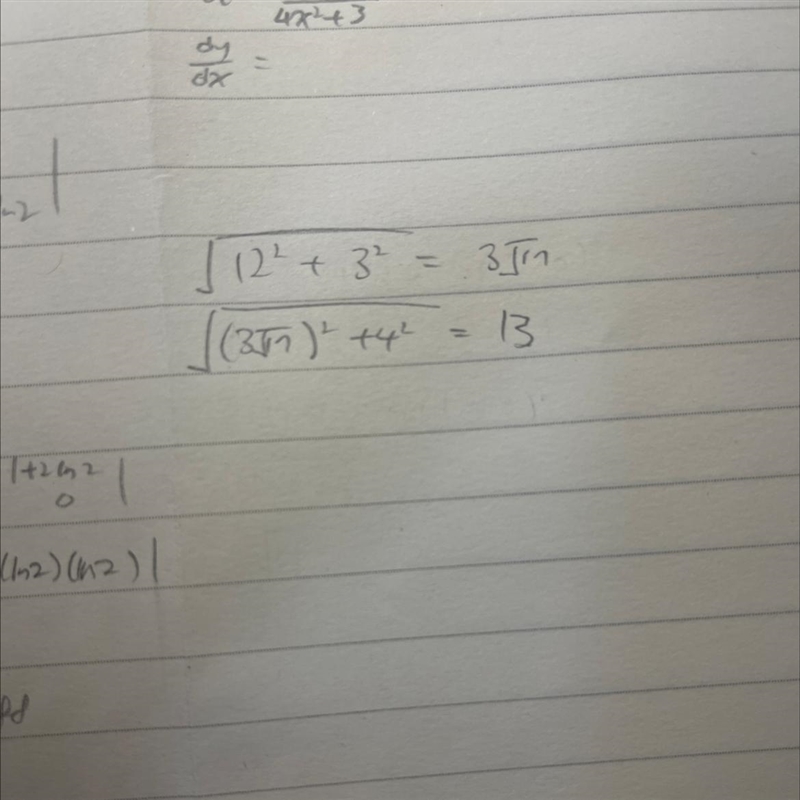 4x²+3
dy/dx =
√(12² + 3²) = 3√17
√((3√17)² + 4²) = 13
1+2ln2
0
(ln2)(ln2)|